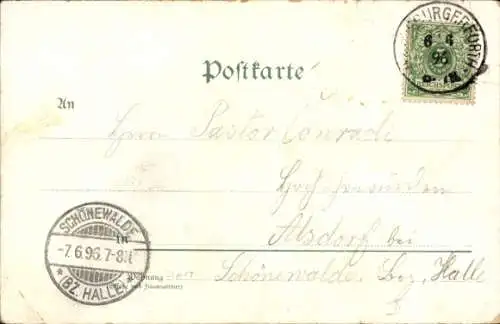 BURGERFORTH
6 6
96
Postkarte
An
Herrn Pastor Conradi
Hochehrwürden
SCHÖNEWALDE
-7.6.96.7-8N
* (BZ. HALLE) *
in
Alsdorf bei
Wohnung
Schönewalde, Bez. Halle
(Straße und Hausnummer)